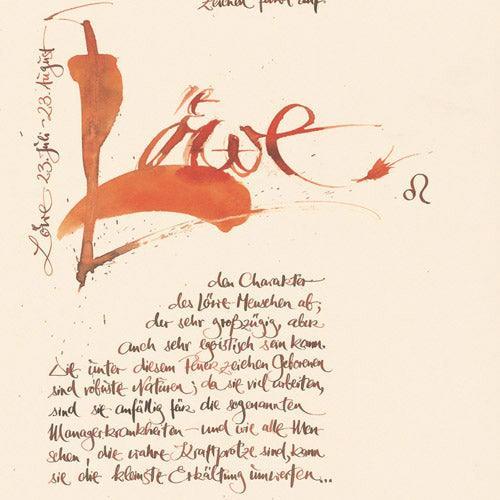 Zeichen färbt auf
Löwe 23. Juli - 23. August
Löwe
♌
den Charakter
des Löwe-Menschen ab;
der sehr großzügig, aber
auch sehr egoistisch sein kann.
Die unter diesem Feuerzeichen Geborenen
sind robuste Naturen; da sie viel arbeiten,
sind sie anfällig für die sogenannten
Managerkrankheiten – und wie alle Men-
schen, die wahre Kraftprotze sind, kann
sie die kleinste Erkältung umwerfen...